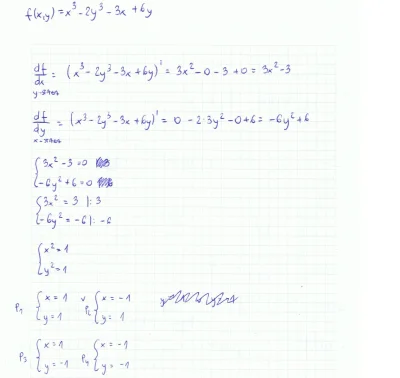 f(x,y) = x³ - 2y³ - 3x + 6y
df/dx = (x³ - 2y³ - 3x + 6y)' = 3x² - 0 - 3 + 0 = 3x² - 3
df/dy = (x³ - 2y³ - 3x + 6y)' = 0 - 2·3y² - 0 + 6 = -6y² + 6
{ 3x² - 3 = 0
{ -6y² + 6 = 0
{ 3x² = 3 |: 3
{ -6y² = -6 |: -6
{ x² = 1
{ y² = 1
P₁ { x = 1 v P₂ { x = -1
{ y = 1 { y = 1
P₃ { x = 1 P₄ { x = -1
{ y = -1 { y = -1